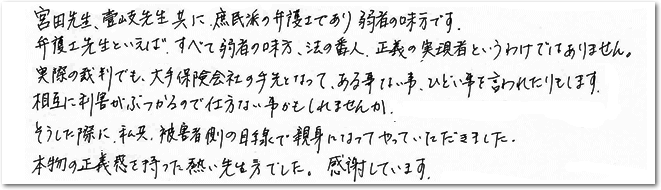 宮田先生、壹岐先生共に、庶民派の弁護士であり弱者の味方です。
弁護士先生といえば、すべて弱者の味方、法の番人、正義の実現者というわけではありません。
実際の裁判でも、大手保険会社の手先となって、ある事ない事、ひどい事を言われたりもします。
相互に利害がぶつかるので仕方ない事かもしれませんが、
そうした際に、私共、被害者側の目線で親身になってやっていただきました。
本物の正義感を持った熱い先生方でした。感謝しています。